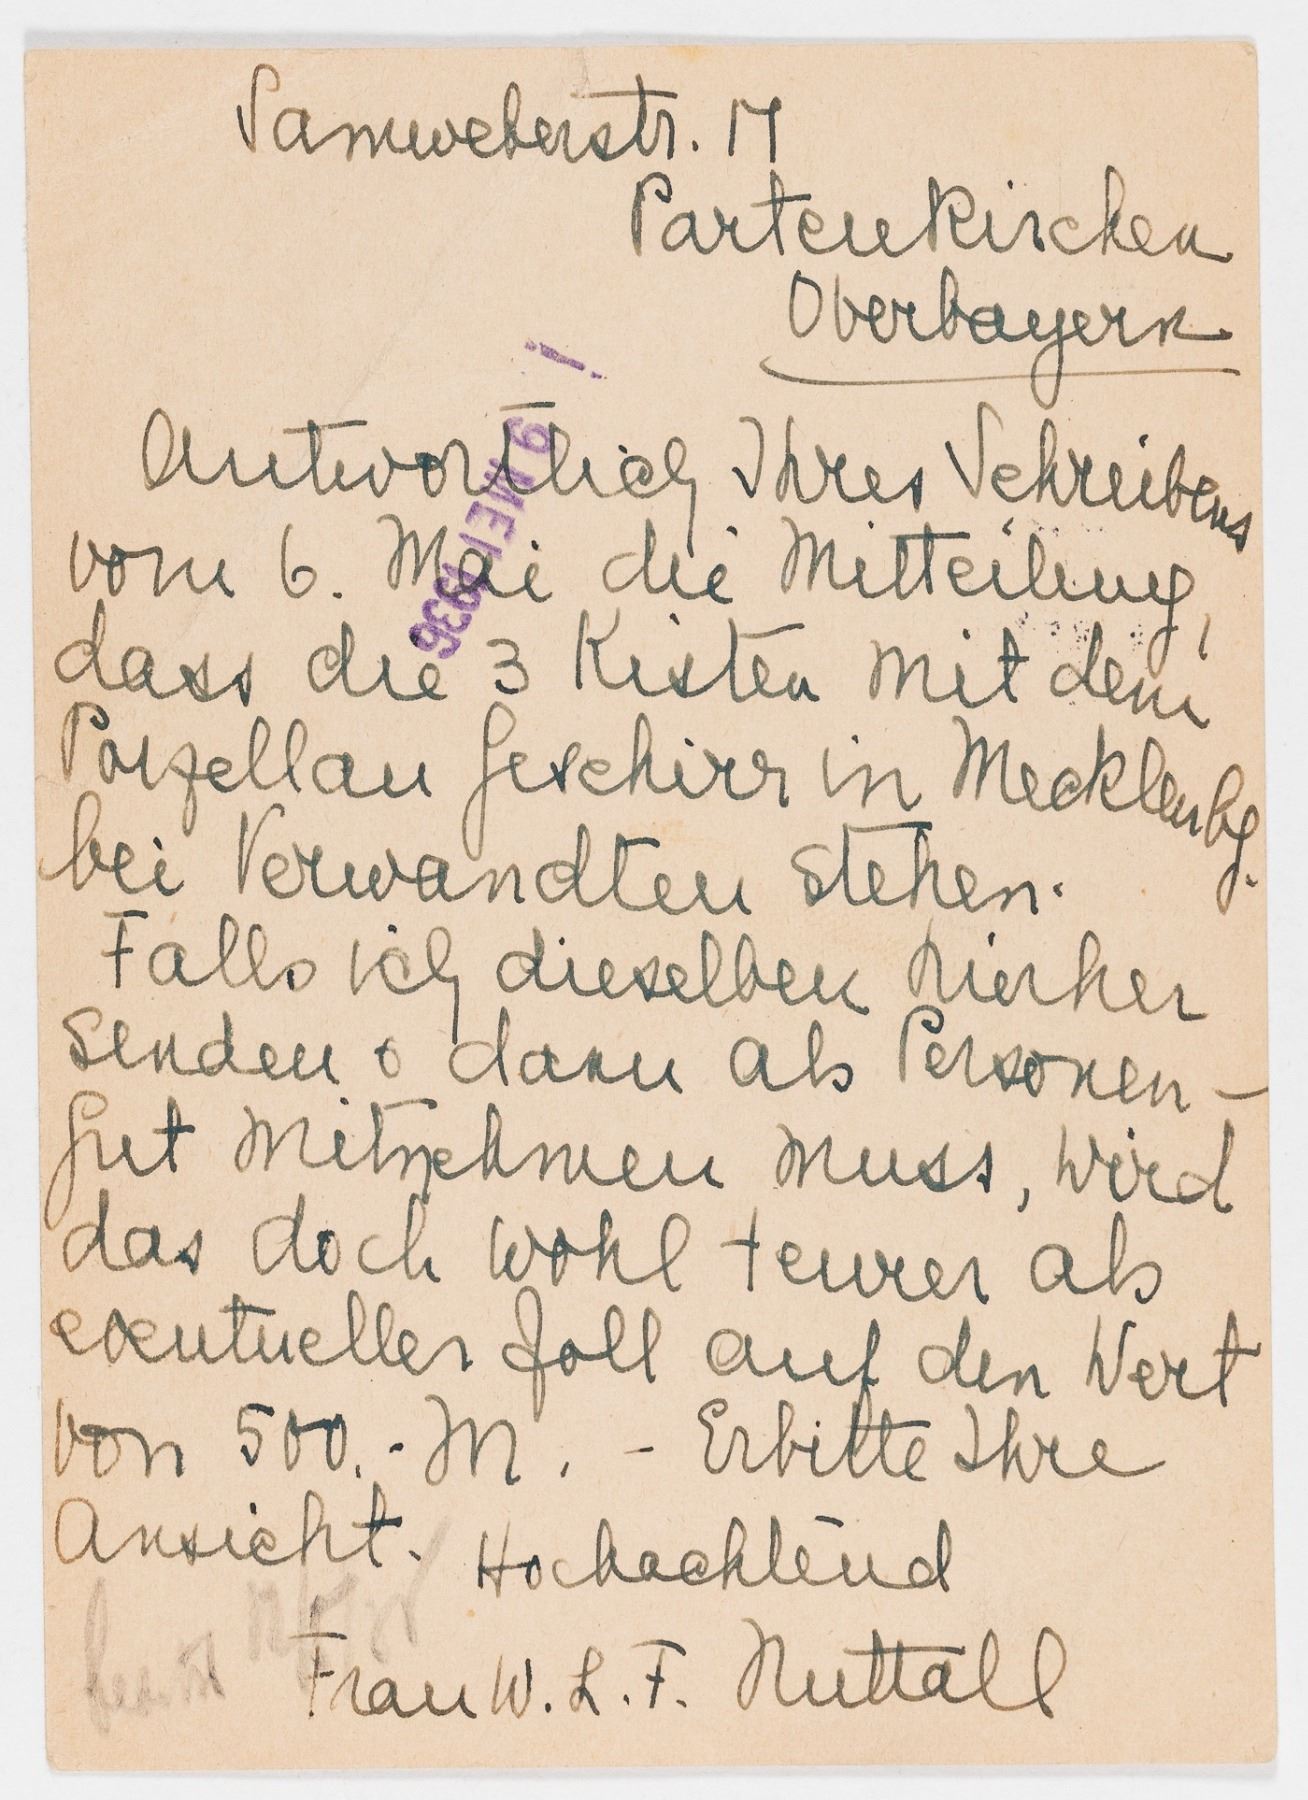 Samweberstr. 17
Partenkirchen
Oberbayern
9 MEI 1936
Antwortlich Ihres Schreibens
vom 6. Mai die Mitteilung,
dass die 3 Kisten mit dem
Porzellan Geschirr in Mecklenbg.
bei Verwandten stehen.
Falls ich dieselben hierher
senden o dann als Personen-
gut mitnehmen muss, wird
das doch wohl teurer als
eventueller Zoll auf den Wert
von 500.- M. - Erbitte Ihre
Ansicht. Hochachtend
Frau W. L. F. Nuttall